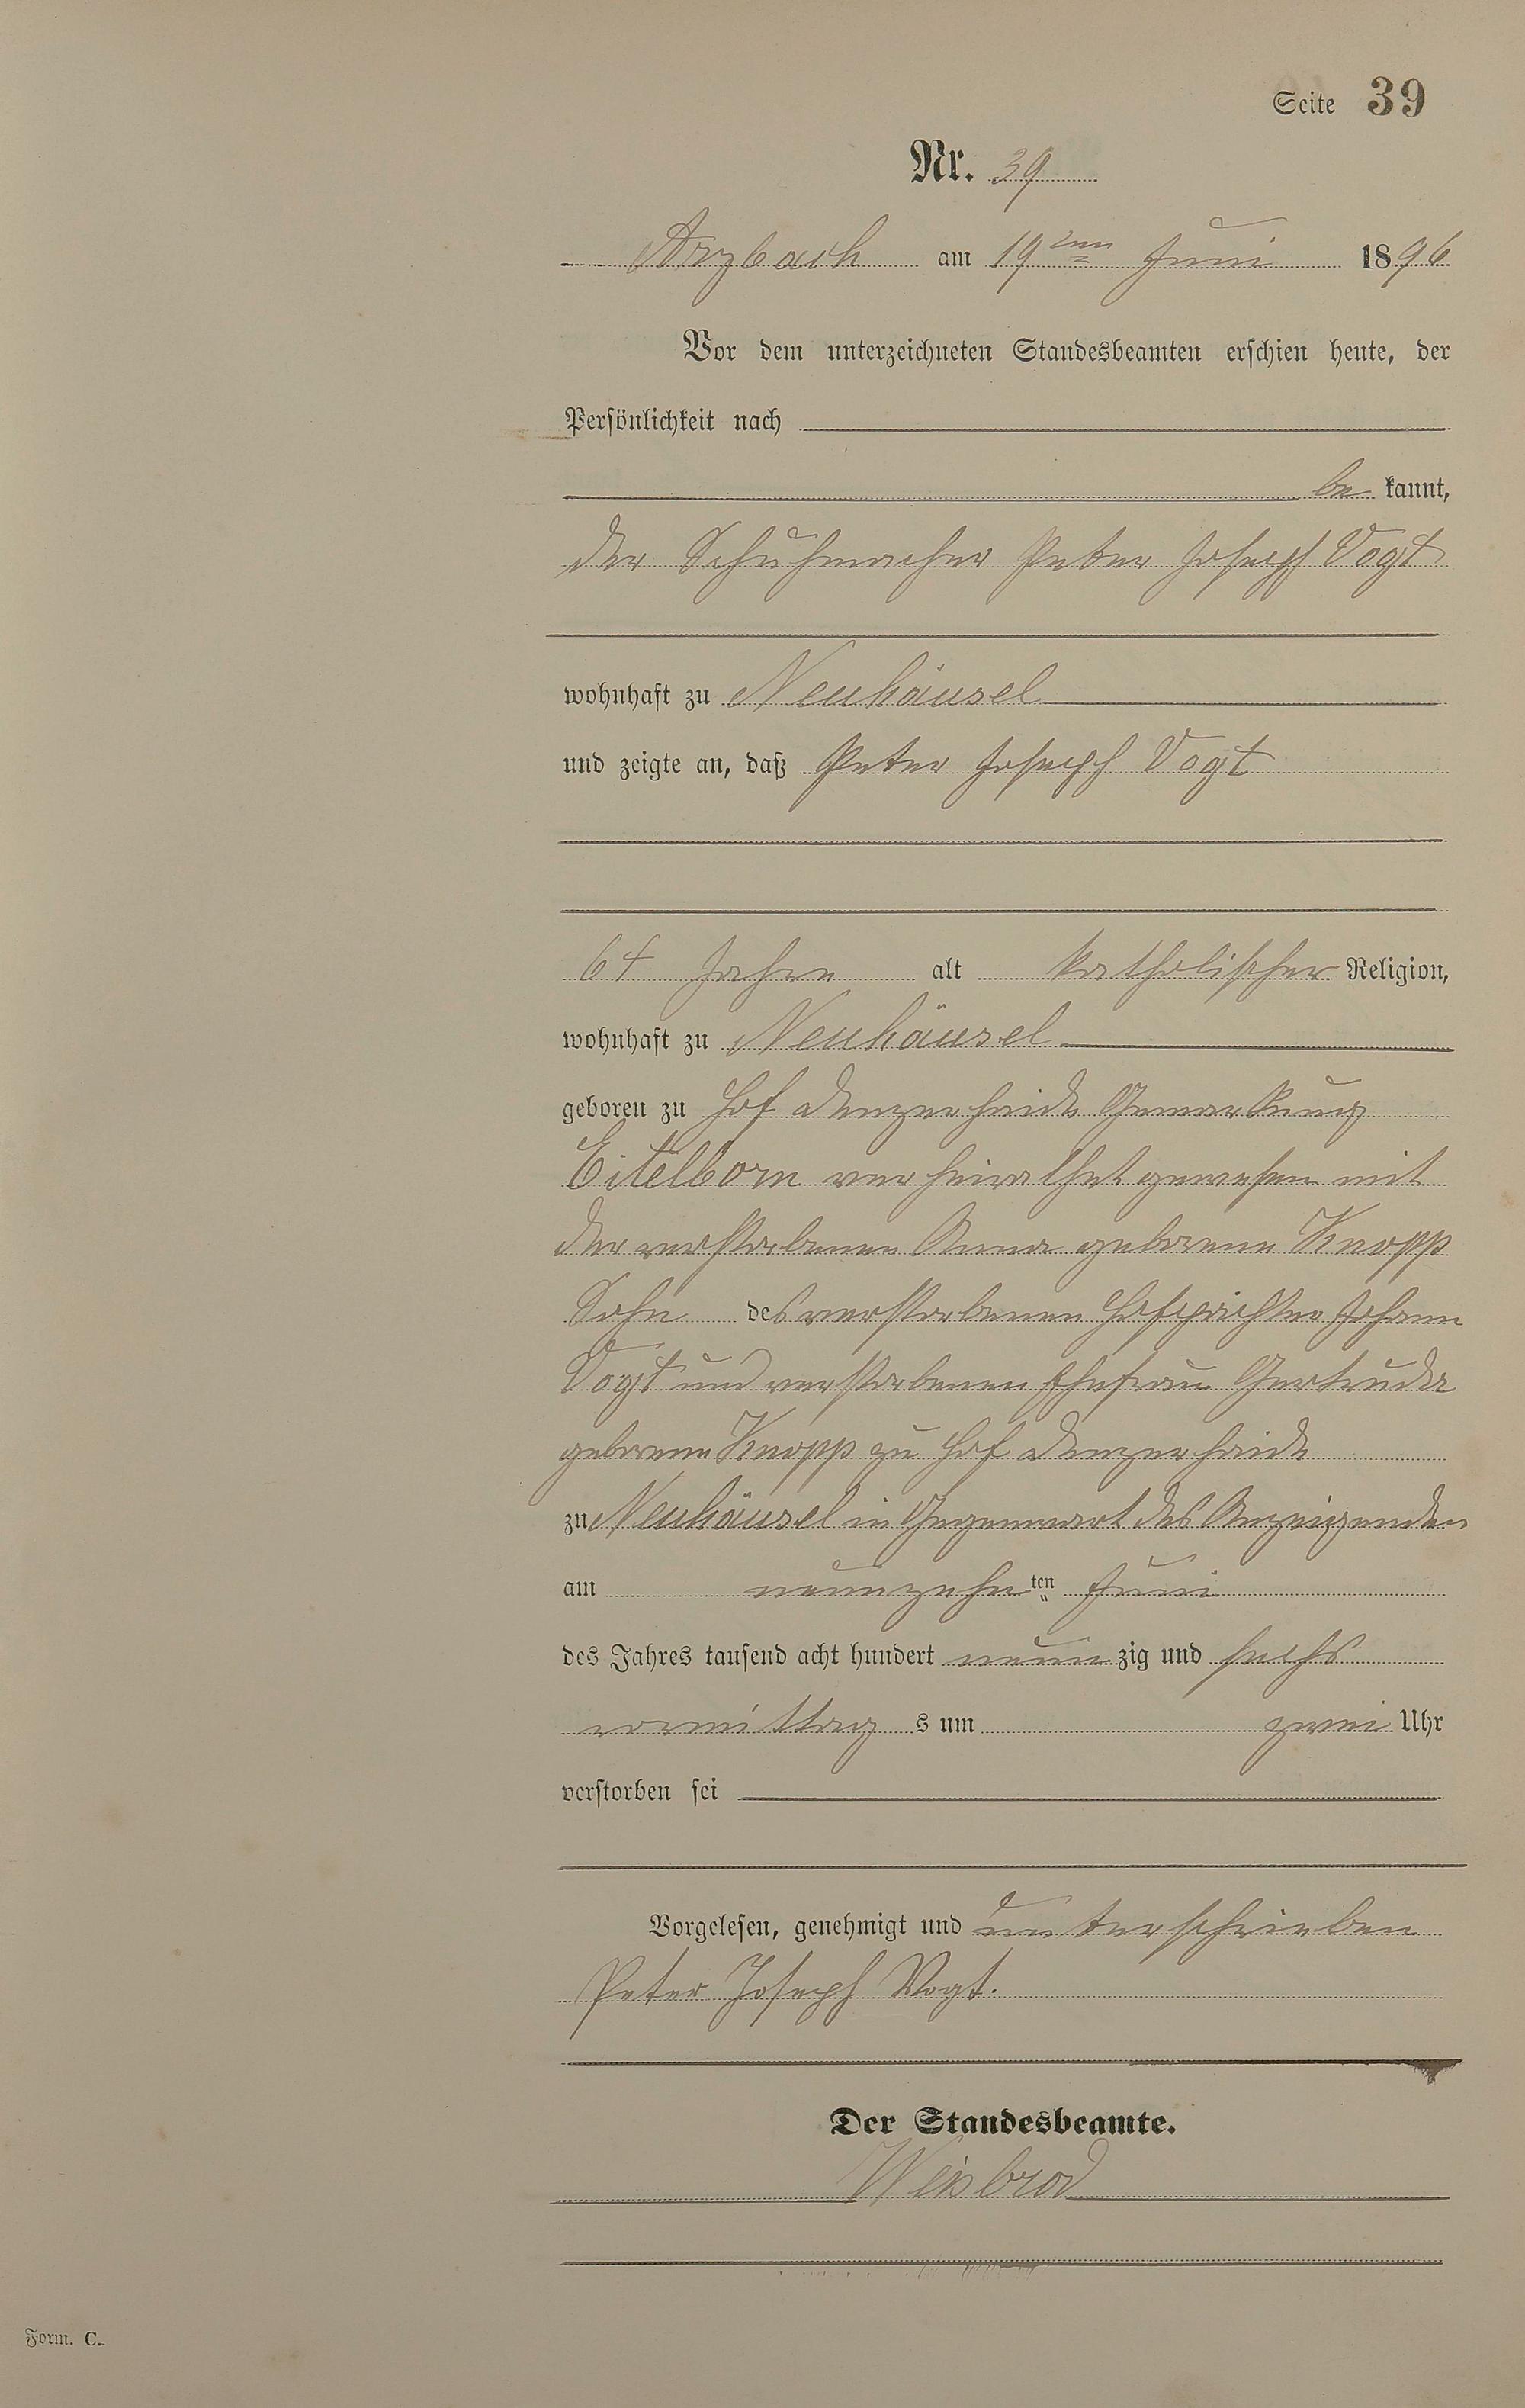 Seite 39
Nr. 39
Arzbach am 19ten Juni 1896
Vor dem unterzeichneten Standesbeamten erschien heute, der
Persönlichkeit nach
be kannt,
der Schuhmacher Peter Joseph Vogt
wohnhaft zu Neuhäusel
und zeigte an, daß Peter Joseph Vogt
64 Jahre alt katholischer Religion,
wohnhaft zu Neuhäusel
geboren zu Hof Denzerheide Gemarkung
Eitelborn verheirathet gewesen mit
der verstorbenen Anna geborene Knopp
Sohn des verstorbenen Hofpächter Johann
Vogt und verstorbenen Ehefrau Gertruda
geborene Knopp zu Hof Denzerheide
zu Neuhäusel in Gegenwart des Anzeigenden
am neunzehnten Juni
des Jahres tausend acht hundert neunzig und sechs
vormittags um zwei Uhr
verstorben sei
Vorgelesen, genehmigt und unterschrieben
Peter Joseph Vogt.
Der Standesbeamte.
Weisbrod
Form. C.